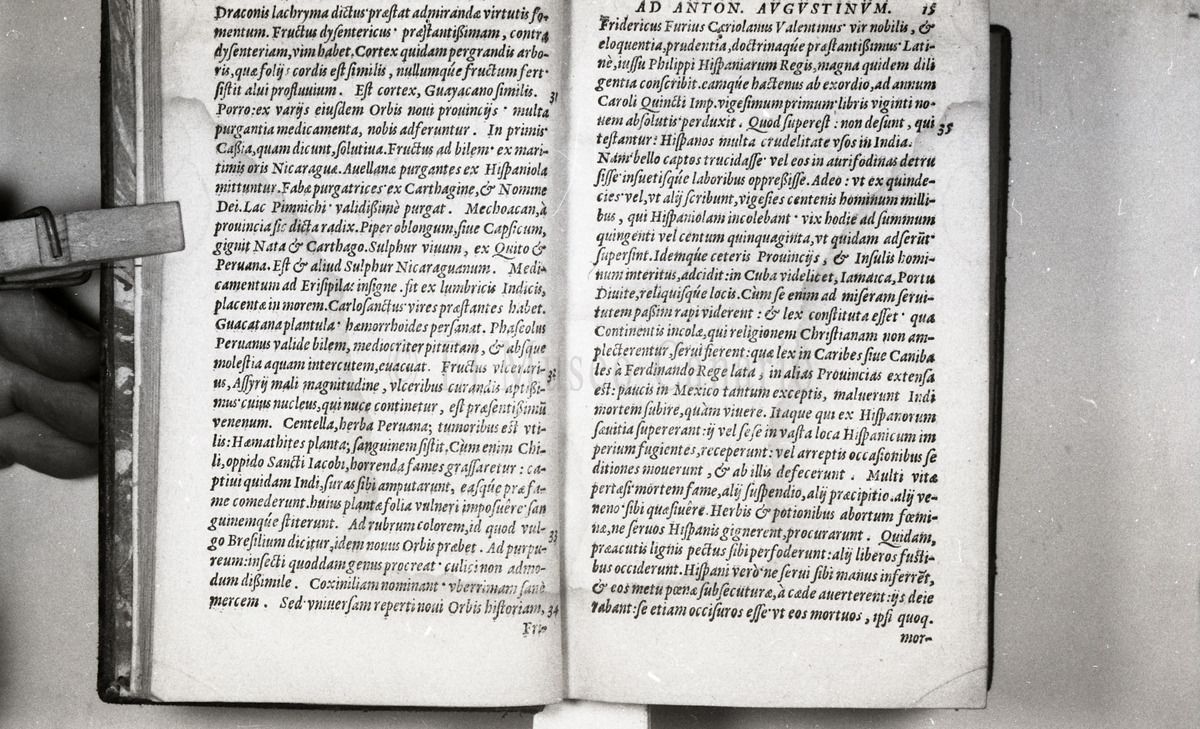 Draconis lachryma dictus præstat admiranda virtutis fo-
mentum. Fructus dysentericus præstantißimam, contra
dysenteriam, vim habet. Cortex quidam pergrandis arbo-
ris, quæ folijs cordis est similis, nullumq́ue fructum fert
sistit alui profluuium. Est cortex, Guayacano similis.
31
Porro: ex varijs eiusdem Orbis noui prouincijs multa
purgantia medicamenta, nobis adferuntur. In primis
Caßia, quam dicunt, solutiua. Fructus ad bilem ex mari-
timis oris Nicaragua. Auellana purgantes ex Hispaniola
mittuntur. Fabæ purgatrices ex Carthagine, & Nomine
Dei. Lac Pinnichi validißimè purgat. Mechoacan, à
prouincia sic dicta radix. Piper oblongum, siue Capsicum,
gignit Nata & Carthago. Sulphur viuum, ex Quito &
Peruana. Est & aliud Sulphur Nicaraguanum. Medi-
camentum ad Erisipilas insigne fit ex lumbricis Indicis,
placentæ in morem. Carlosanctus vires præstantes habet.
Guacatana plantula hæmorrhoides persanat. Phaseolus
Peruanus valide bilem, mediocriter pituitam, & absque
molestia aquam intercutem, euacuat. Fructus vlcerari-
us, Assyrij mali magnitudine, vlceribus curandis aptißi-
mus cuius nucleus, qui nuce continetur, est præsentißimũ
venenum. Centella, herba Peruana; tumoribus est vti-
lis: Hæmathites planta; sanguinem sistit. Cùm enim Chi-
li, oppido Sancti Iacobi, horrenda fames grassaretur: ca-
ptiui quidam Indi, suras sibi amputarunt, easq́ue præ fa-
me comederunt. huius plantæ folia vulneri imposuêre san
guinemq́ue stiterunt. Ad rubrum colorem, id quod vul-
33
go Bresilium dicitur, idem nouus Orbis præbet. Ad purpu-
reum: insecti quoddam genus procreat culici non admo-
dum dißimile. Coxiniliam nominant vberrimam sanè
mercem. Sed vniuersam reperti noui Orbis historiam, 34
Fri-
AD ANTON. AVGVSTINVM. 15
Fridericus Furius Cæriolanus Valentinus vir nobilis, &
eloquentia, prudentia, doctrinaq́ue præstantißimus Lati-
nè, iussu Philippi Hispaniarum Regis, magna quidem dili
gentia conscribit. eamq́ue hactenus ab exordio, ad annum
Caroli Quincti Imp. vigesimum primum libris viginti no-
uem absolutis perduxit. Quod superest: non desunt, qui 35
testantur: Hispanos multa crudelitate vsos in India.
Nam bello captos trucidasse vel eos in aurifodinas detru
sisse insuetisq́ue laboribus oppreßisse. Adeo: vt ex quinde-
cies vel, vt alij scribunt, vigesies centenis hominum milli-
bus, qui Hispaniolam incolebant vix hodie ad summum
quingenti vel centum quinquaginta, vt quidam adserũt
supersint. Idemq́ue ceteris Prouincijs, & Insulis homi-
num interitus, adcidit: in Cuba videlicet, Iamaica, Portu
Diuite, reliquisq́ue locis. Cum se enim ad miseram serui-
tutem paßim rapi viderent: & lex constituta esset qua
Continentis incolæ, qui religionem Christianam non am-
plecterentur, serui fierent: quæ lex in Caribes siue Caniba
les à Ferdinando Rege lata, in alias Prouincias extensa
est: paucis in Mexico tantum exceptis, maluerunt Indi
mortem subire, quàm viuere. Itaque qui ex Hispanorum
sæuitia supererant: ij vel sese in vasta loca Hispanicum im
perium fugientes, receperunt: vel arreptis occasionibus se
ditiones mouerunt, & ab illis defecerunt. Multi vitæ
pertæsi mortem fame, alij suspendio, alij præcipitio. alij ve-
neno sibi quæsiuêre. Herbis & potionibus abortum fœmi-
næ, ne seruos Hispanis gignerent, procurarunt. Quidam,
præacutis lignis pectus sibi perfoderunt: alij liberos fusti-
bus occiderunt. Hispani verò ne serui sibi manus inferrẽt,
& eos metu pœnæ subsecuturæ, à cæde auerterent: ijs deie
rabant: se etiam occisuros esse vt eos mortuos, ipsi quoq.
mor-